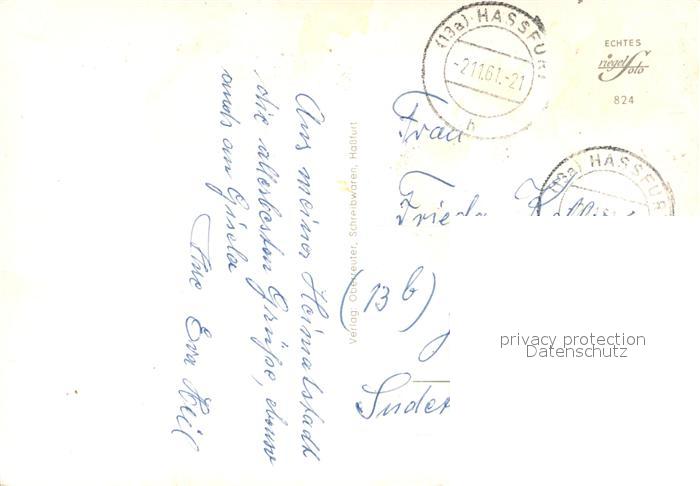 Aus meiner Heimatstadt
die allerbesten Grüße, ebenso
auch an Gisela
Ihre Eva Heil
Verlag: Oberreuter, Schreibwaren, Haßfurt
(13a) HASSFURT
-2.11.61.-21
h
ECHTES
riegel Foto
824
(13a) HASSFUR
Frau
Frieda
(13b)
Suder
privacy protection
Datenschutz